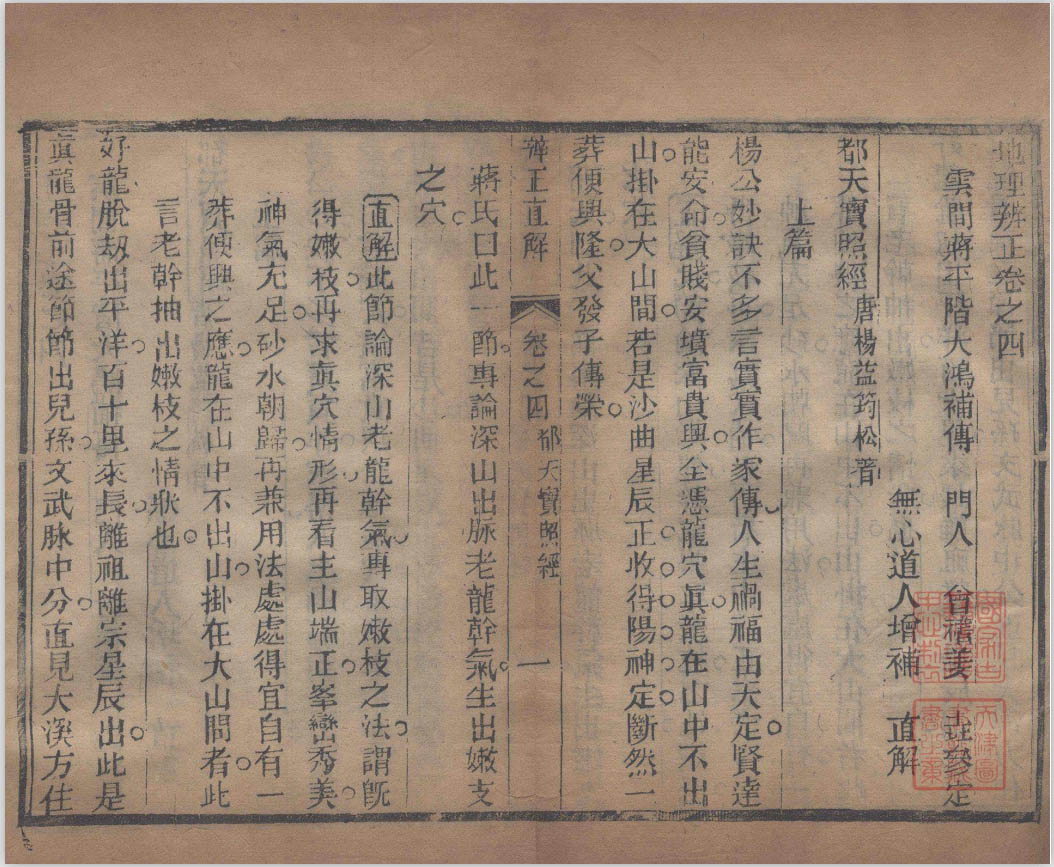 地理辨正卷之四
雲間蔣平階大鴻補傳 門人 會稽姜垚參定
無心道人增補 直解
都天寶照經 唐楊益筠松著
上篇
楊公妙訣不多言實實作家傳人生禍福由天定賢達
能安命貧賤安墳富貴興全憑龍穴眞龍在山中不出
山掛在大山間若是沙曲星辰正收得陽神定斷然一
葬便興隆父發子傳榮
辨正直解 卷之四 都天寶照經 一
蔣氏曰此一節專論深山出脉老龍幹氣生出嫩支
之穴
直解此節論深山老龍幹氣專取嫩枝之法謂旣
得嫩枝再求眞穴情形再看主山端正峯巒秀美
神氣充足砂水朝歸再兼用法處處得宜自有一
葬便興之應龍在山中不出山掛在大山間者此
言老幹抽出嫩枝之情狀也
好龍脫劫出平洋百十里來長離祖離宗星辰出此是
眞龍骨前途節節出兒孫文武脉中分直見大溪方住